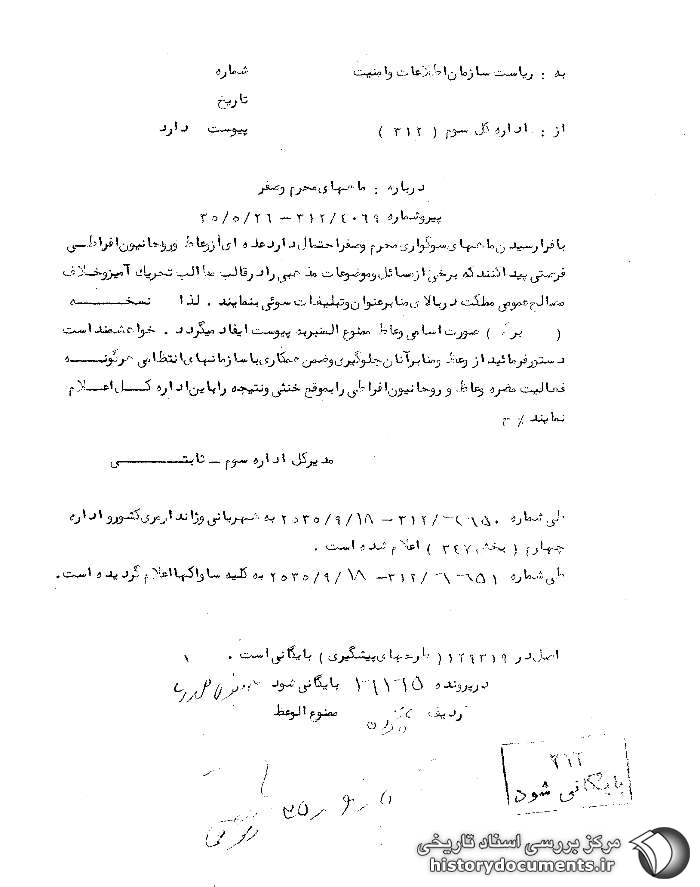 به : ریاست سازمان اطلاعات وامنیت
شماره
تاریخ
از : اداره کل سوم ( ۳۱۲ )
پیوست دارد
درباره : ماههای محرم وصفر
پیروشماره ۳۱۲/۴۰۶۹ – ۳۵/۵/۲۶
بافرارسیدن ماههای سوگواری محرم وصفر احتمال دارد عده ای ازوعاظ وروحانیون افراطی
فرصتی پیدا کنند که برخی ازمسائل وموضوعات مذهبی را در قالب مطالب تحریک آمیز وخلاف
مصالح عمومی مملکت دربالای منابر عنوان وتبلیغات سوئی بنمایند . لذا نسخـــه
( برگ ) صورت اسامی وعاظ ممنوع المنبر به پیوست ایفاد میگردد . خواهشمند است
دستور فرمائید از وعظ ومنابر آنان جلوگیری وضمن همکاری با سازمانهای انتظامی هرگونـــه
فعالیت مضره وعاظ و روحانیون افراطی را بموقع خنثی ونتیجه را باین اداره کـــل اعـــلام
نمایند
مدیرکل اداره سوم ـ ثابتـــی
طی شماره ۳۱۲/ – ۲۵۳۵/۹/۱۸ به شهربانی وژاندارمری کشور و اداره
چهارم ( بخش ۳۴۷ ) اعلام شده است .
طی شماره ۳۱۲/ – ۲۵۳۵/۹/۱۸ به کلیه ساواکها اعلام گردیده است .
اصل در ۱۲۹۳۱۹ ( طرحهای پیشگیری ) بایگانی است . ۱
درپرونده بایگانی شود
ردیف ممنوع الوعظ
۳۱۲
بایگانی شود
مرکز بررسی اسناد تاریخی
historydocuments.ir